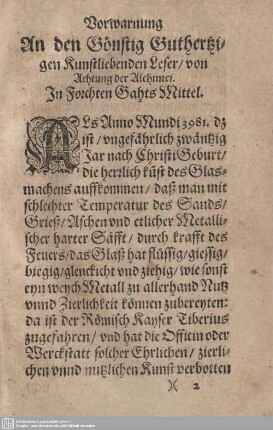 Vorwarnung
An den Gönstig Guthertzi-
gen Kunstliebenden Leser/ von
Achtung der Alchimei.
In Forchten Gahts Mittel.
ALs Anno Mundi 3981. dz
ist/ vngefährlich zwäntzig
Jar nach Christi Geburt/
die herrlich kũst des Glas-
machens auffkommen/ daß man mit
schlechter Temperatur des Sands/
Grieß/ Aschen vnd etlicher Metalli-
scher harter Säfft/ durch krafft des
Feuers/ das Glaß hat flüssig/ giessig/
biegig/ glenckicht vnd ziehig/ wie sonst
eyn weych Metall zu allerhand Nutz
vnnd Zierlichkeit können zubereyten:
da ist der Römisch Kayser Tiberius
zugefahren/ vnd hat die Officin oder
Werckstatt solcher Ehrlichen/ zierli-
chen vnnd nutzlichen Kunst verbotten
)( 2